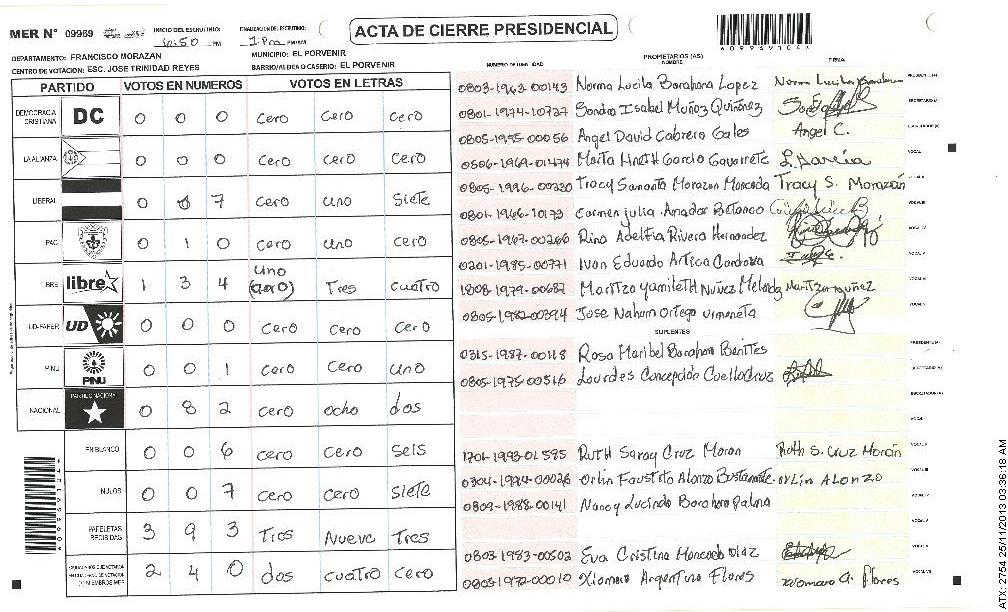 MER N° 09969
INICIO DEL ESCRUTINIO: 4:50 PM
FINALIZACION DEL ESCRUTINIO:
ACTA DE CIERRE PRESIDENCIAL
DEPARTAMENTO: FRANCISCO MORAZAN
MUNICIPIO: EL PORVENIR
CENTRO DE VOTACION: ESC. JOSE TRINIDAD REYES
BARRIO/ALDEA O CASERIO: EL PORVENIR
PARTIDO VOTOS EN NUMEROS VOTOS EN LETRAS
DEMOCRACIA CRISTIANA DC 0 0 0 cero cero cero
LA ALIANZA 0 0 0 cero cero cero
LIBERAL 0 7 cero uno siete
PAC 0 1 0 cero uno cero
LIBRE libre 1 3 4 uno (cero) Tres cuatro
UD-FAPER UD 0 0 0 cero cero cero
PINU PINU 0 0 1 cero cero uno
NACIONAL PARTIDO NACIONAL 0 8 2 cero ocho dos
EN BLANCO 0 0 6 cero cero seis
NULOS 0 0 7 cero cero siete
PAPELETAS RECIBIDAS 3 9 3 Tres Nueve Tres
2 4 0 dos cuatro cero
NUMERO DE IDENTIDAD PROPIETARIOS (AS) NOMBRE FIRMA
0803-1963-00143 Norma Lucila Barahona Lopez Norma Lucila Barahona
0801-1974-10727 Sondra Isabel Muñoz Quiñonez
0805-1995-00056 Angel David Cabrera Gales Angel C.
0506-1969-01474 Marta Lineth Garcia Gavarrete L. Garcia
0805-1996-00330 Tracy Samanta Morazan Moncada Tracy S. Morazán
0801-1966-10173 Carmen Julia Amador Betanco
0805-1967-00266 Rina Adelfia Rivera Hernandez
0201-1985-00771 Ivan Eduardo Artica Cardoza
1808-1979-00687 Maritza Yamileth Nuñez Maritza nuñez
0805-1982-00394 Jose Nahum Ortega
SUPLENTES
0315-1987-00118 Rosa Maribel Barahona Benites
0805-1975-00516 Lourdes Concepción Coello Cruz
1701-1993-01595 Ruth Saray Cruz Moran Ruth S. Cruz Morán
0304-1974-00026 Orlin Faustito Alonzo Bustamante orlin Alonzo
0809-1988-00141 Nancy Lucinda Barahona Palma
0803-1983-00502 Eva Cristina Moncada Diaz
0805-1972-00010 Xiomara Argentina Flores Xiomara A. Flores
ATX: 2754 25/11/2013 03:36:18 AM